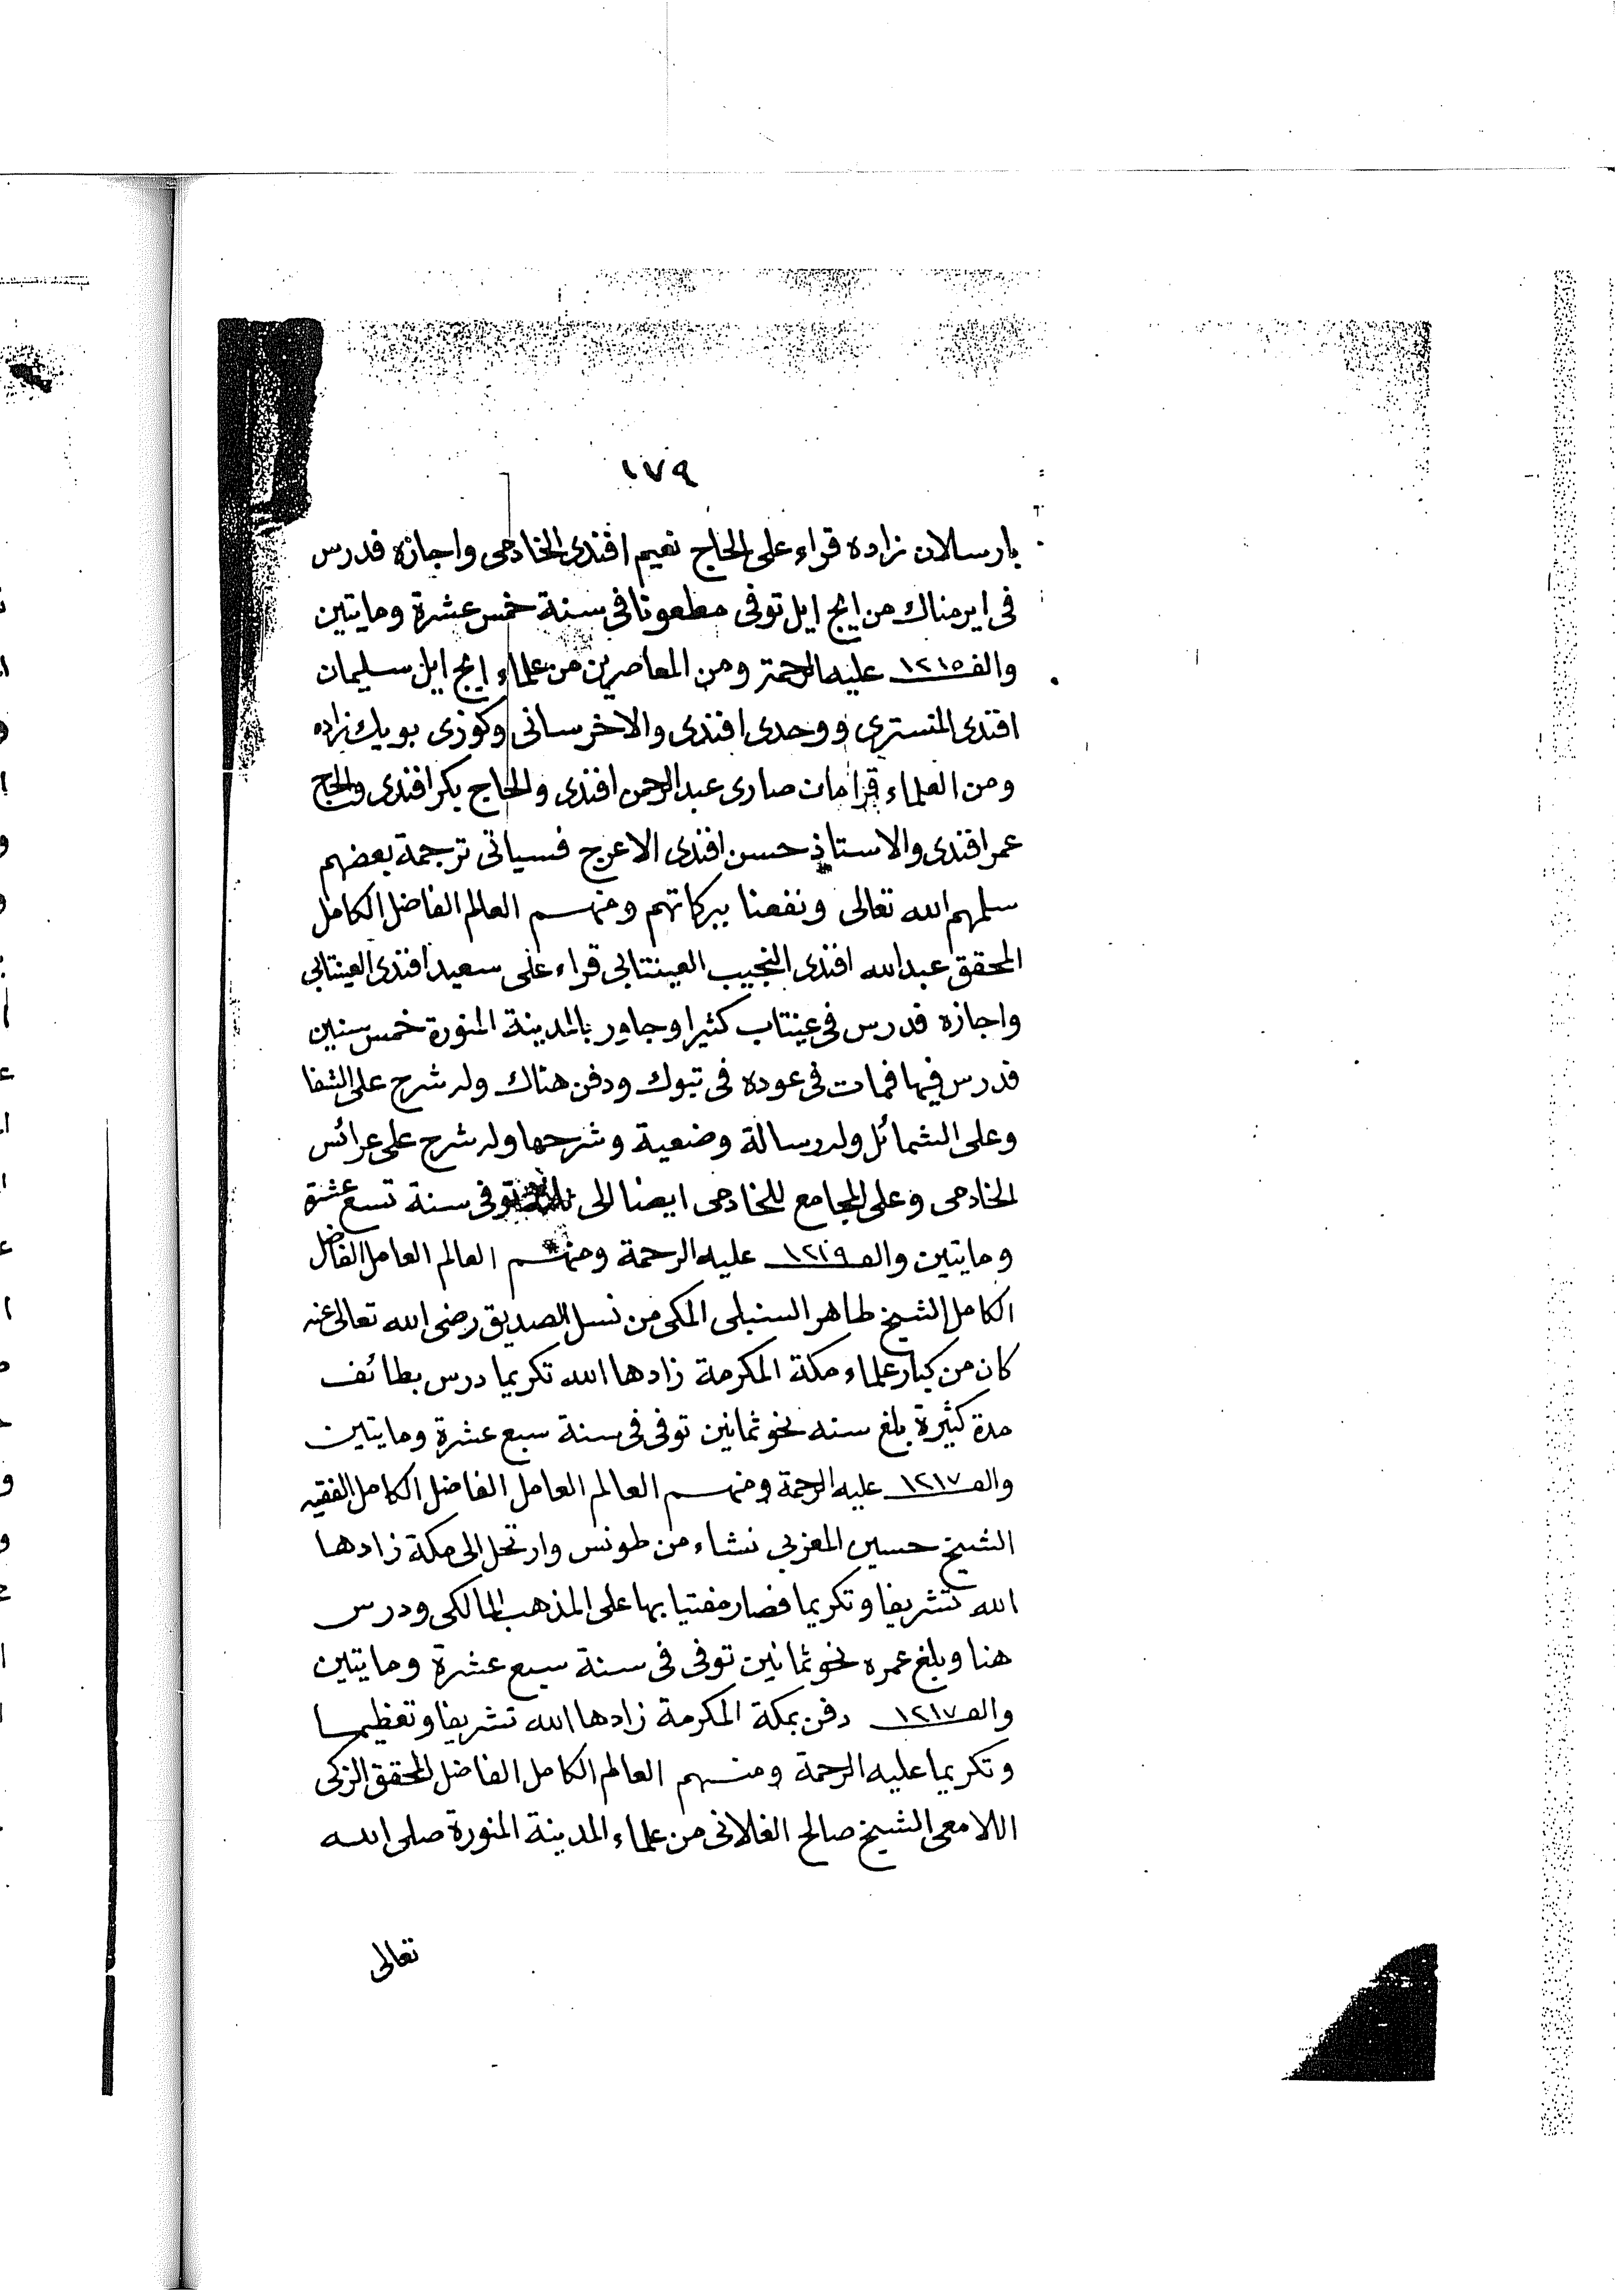 ١٧٩
بارسالان زاده قراء على الحاج نعيم افندى الخادمى واجازه فدرس
فى ايرمناك من ايج ايل توفى مطعونا فى سنة خمس عشرة ومايتين
والف ١٢١٥ عليه الرحمة ومن المعاصرين من علماء ايج ايل سليمان
افندى المنسترى ووحدى افندى والاخرسانى وكوزى بويك زاده
ومن العلماء قرامان صارى عبد الرحمن افندى والحاج بكر افندى والحاج
عمر افندى والاستاذ حسن افندى الاعرج فسياتى ترجمة بعضهم
سلمهم الله تعالى ونفعنا ببركاتهم ومنهم العالم الفاضل الكامل
المحقق عبد الله افندى النجيب العينتابى قراء على سعيد افندى العينتابى
واجازه فدرس فى عينتاب كثيرا وجاور بالمدينة المنورة خمس سنين
فدرس فيها فمات فى عوده فى تبوك ودفن هناك وله شرح على الشفا
وعلى الشمائل وله رسالة وضعية وشرحها وله شرح على عرائس
الخادمى وعلى المجامع للخادمى ايضا الى توفى سنة تسع عشرة
ومايتين والف ١٢١٩ عليه الرحمة ومنهم العالم العامل الفاضل
الكامل الشيخ طاهر السنبلى المكى من نسل الصديق رضى الله تعالى عنه
كان من كبار علماء مكة المكرمة زادها الله تكريما درس بطائف
مدة كثيرة بلغ سنه نحو ثمانين توفى فى سنة سبع عشرة ومايتين
والف ١٢١٧ عليه الرحمة ومنهم العالم العامل الفاضل الكامل الفقيه
الشيخ حسين المغربى نشاء من طونس وارتحل الى مكة زادها
الله تشريفا وتكريما فصار مفتيا بها على المذهب المالكى ودرس
هنا وبلغ عمره نحو ثمانين توفى فى سنة سبع عشرة ومايتين
والف ١٢١٧ دفن بمكة المكرمة زادها الله تشريفا وتعظيما
وتكريما عليه الرحمة ومنهم العالم الكامل الفاضل المحقق الزكى
اللامعى الشيخ صالح الفلانى من علماء المدينة المنورة صلى الله
تعالى